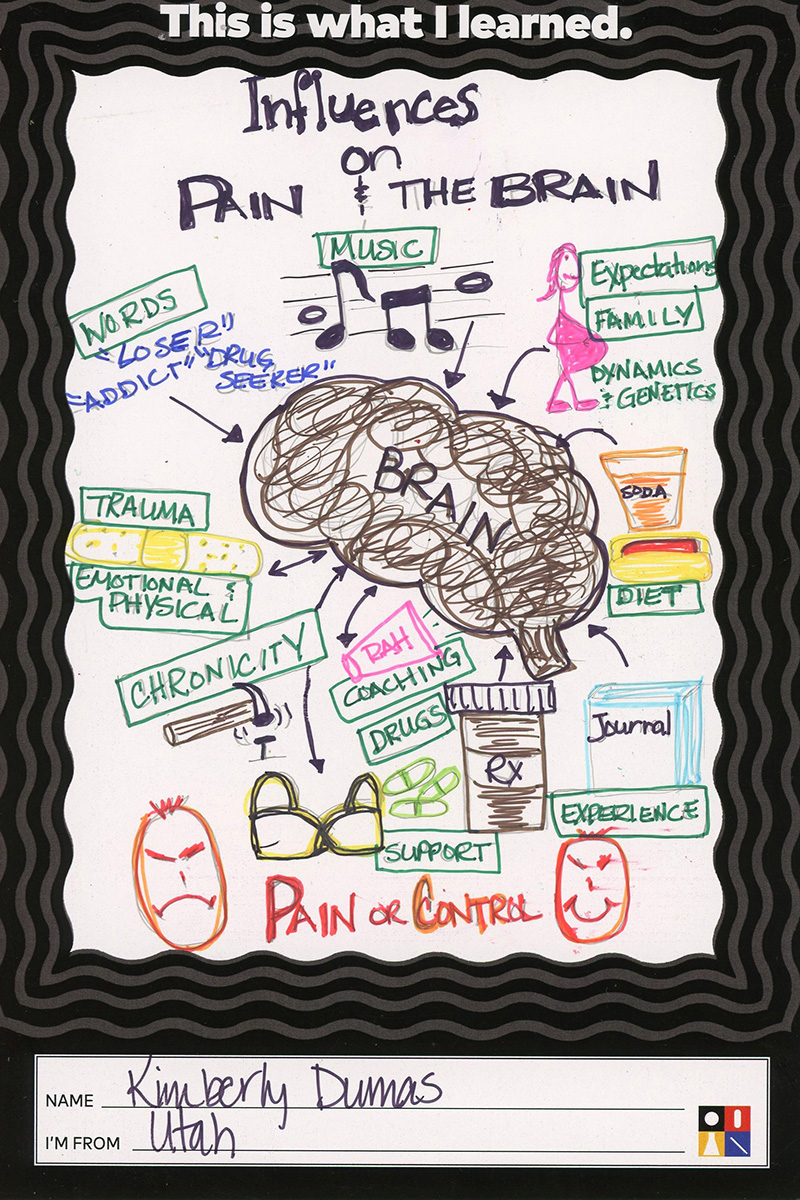 This is what I learned.
Influences
on
PAIN & THE BRAIN
MUSIC
WORDS
"LOSER"
"ADDICT" "DRUG
SEEKER"
Expectations
FAMILY
DYNAMICS
& GENETICS
BRAIN
SODA
DIET
TRAUMA
EMOTIONAL &
PHYSICAL
CHRONICITY
RAH
COACHING
DRUGS
RX
Journal
EXPERIENCE
SUPPORT
PAIN OR CONTROL
NAME Kimberly Dumas
I'M FROM Utah